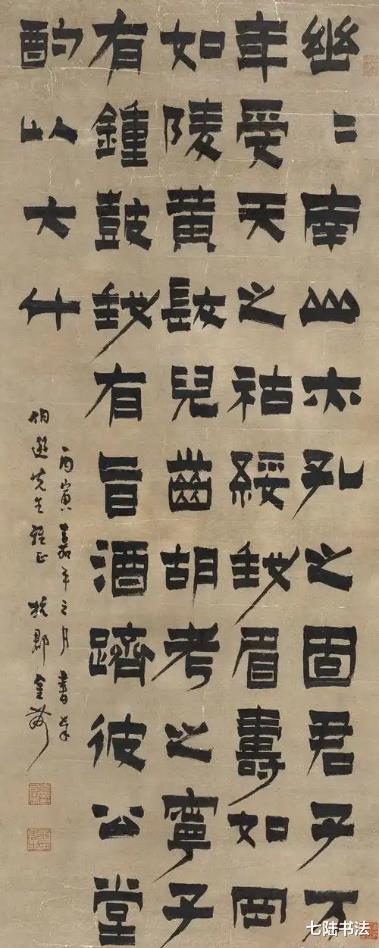 幽〻南山亦孔之固君子万
年受天之祜綏我眉壽如岡
如陵黃髮兒齒胡考之寧子
有鍾鼓我有旨酒躋彼公堂
酌以大斗
丙寅嘉平之月書奉
伯 先生 正 杭郡金農
七陆书法